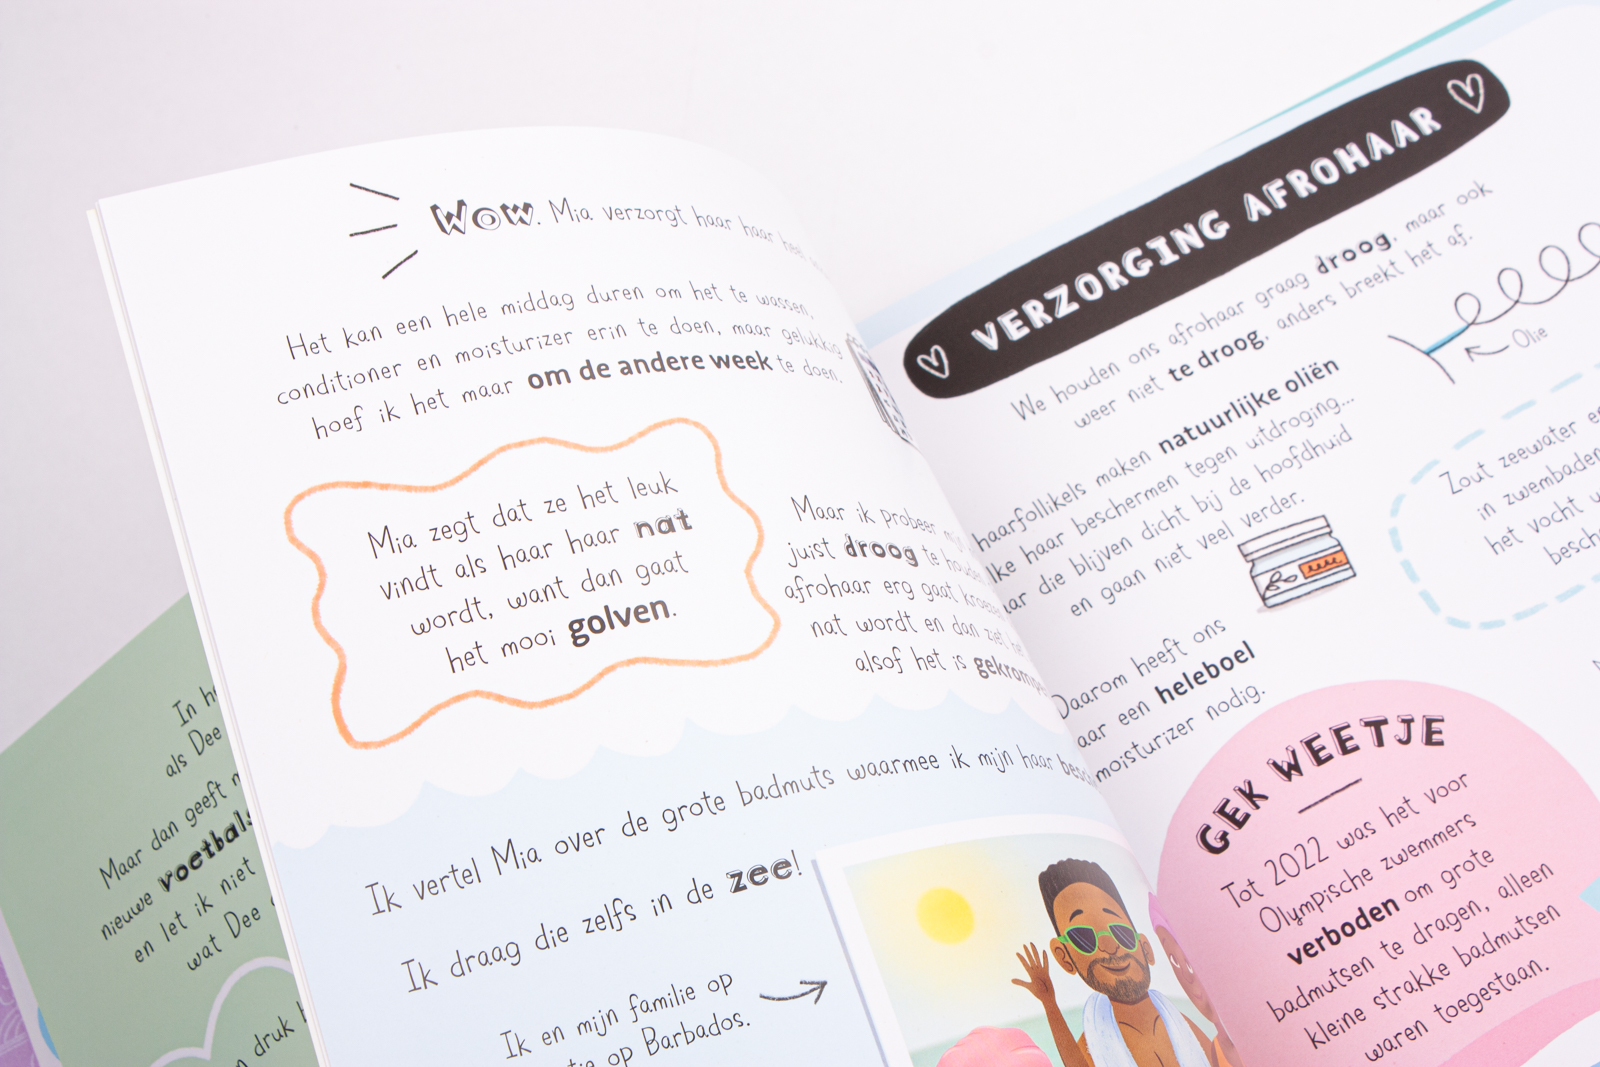 Wow. Mia verzorgt haar haar
Het kan een hele middag duren om het te wassen,
conditioner en moisturizer erin te doen, maar gelukkig
hoef ik het maar om de andere week te doen.
Mia zegt dat ze het leuk
vindt als haar haar nat
wordt, want dan gaat
het mooi golven.
Maar ik probeer
juist droog te
afrohaar erg gaat
nat wordt en dan
alsof het is
Ik vertel Mia over de grote badmuts waarmee ik mijn haar
Ik draag die zelfs in de zee!
Ik en mijn familie op
op Barbados.
In
als Dee
Maar dan geeft
nieuwe
en let ik niet
wat Dee
druk
VERZORGING AFROHAAR
We houden ons afrohaar graag droog, maar ook
weer niet te droog, anders breekt het af.
Olie
haarfollikels maken natuurlijke oliën
haar beschermen tegen uitdroging...
die blijven dicht bij de hoofdhuid
en gaan niet veel verder.
Zout zeewater
in zwembaden
het vocht
Daarom heeft ons
een heleboel
moisturizer nodig.
GEK WEETJE
Tot 2022 was het voor
Olympische zwemmers
verboden om grote
badmutsen te dragen, alleen
kleine strakke badmutsen
waren toegestaan.